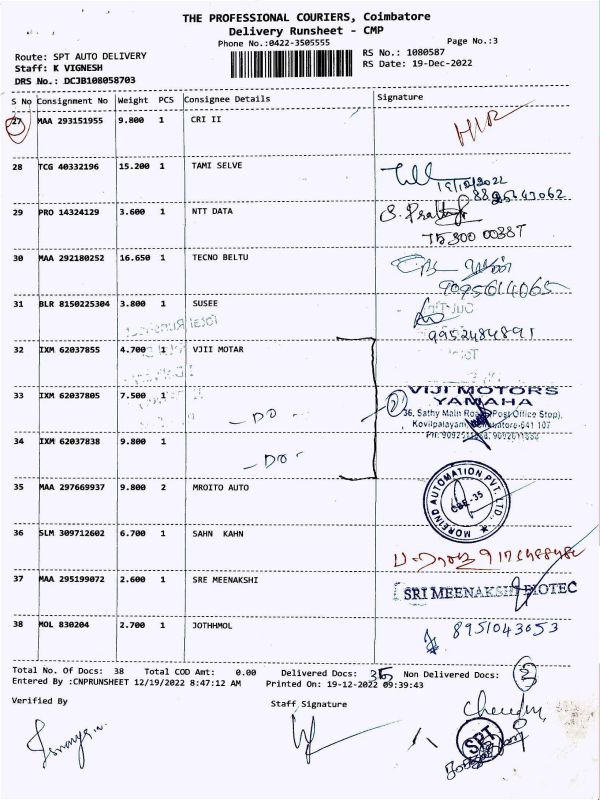 THE PROFESSIONAL COURIERS, Coimbatore
Delivery Runsheet - CMP
Phone No.:0422-3505555
Page No.:3
Route: SPT AUTO DELIVERY
RS No.: 1080587
Staff: K VIGNESH
RS Date: 19-Dec-2022
DRS No.: DCJB108058703
S No Consignment No Weight PCS Consignee Details Signature
27 MAA 293151955 9.800 1 CRI II
28 TCG 40332196 15.200 1 TAMI SELVE
19/12/2022
29 PRO 14324129 3.600 1 NTT DATA
30 MAA 292180252 16.650 1 TECNO BELTU
9095614065
31 BLR 8150225304 3.800 1 SUSEE
9952484891
32 IXM 62037855 4.700 1 VJII MOTAR
33 IXM 62037805 7.500 1 - DO - VIJI MOTORS
YAMAHA
36, Sathy Main Road (Post Office Stop),
Kovilpalayam, Coimbatore-641 107
34 IXM 62037838 9.800 1 - DO -
35 MAA 297669937 9.800 2 MROITO AUTO
MOREIND AUTOMATION PVT. LTD.
CBE-35
36 SLM 309712602 6.700 1 SAHN KAHN
37 MAA 295199072 2.600 1 SRE MEENAKSHI SRI MEENAKSHI BIOTEC
38 MOL 830204 2.700 1 JOTHHMOL 8951043053
Total No. Of Docs: 38 Total COD Amt: 0.00 Delivered Docs: Non Delivered Docs:
Entered By :CNPRUNSHEET 12/19/2022 8:47:12 AM Printed On: 19-12-2022 09:39:43
Verified By
Staff Signature
SPT